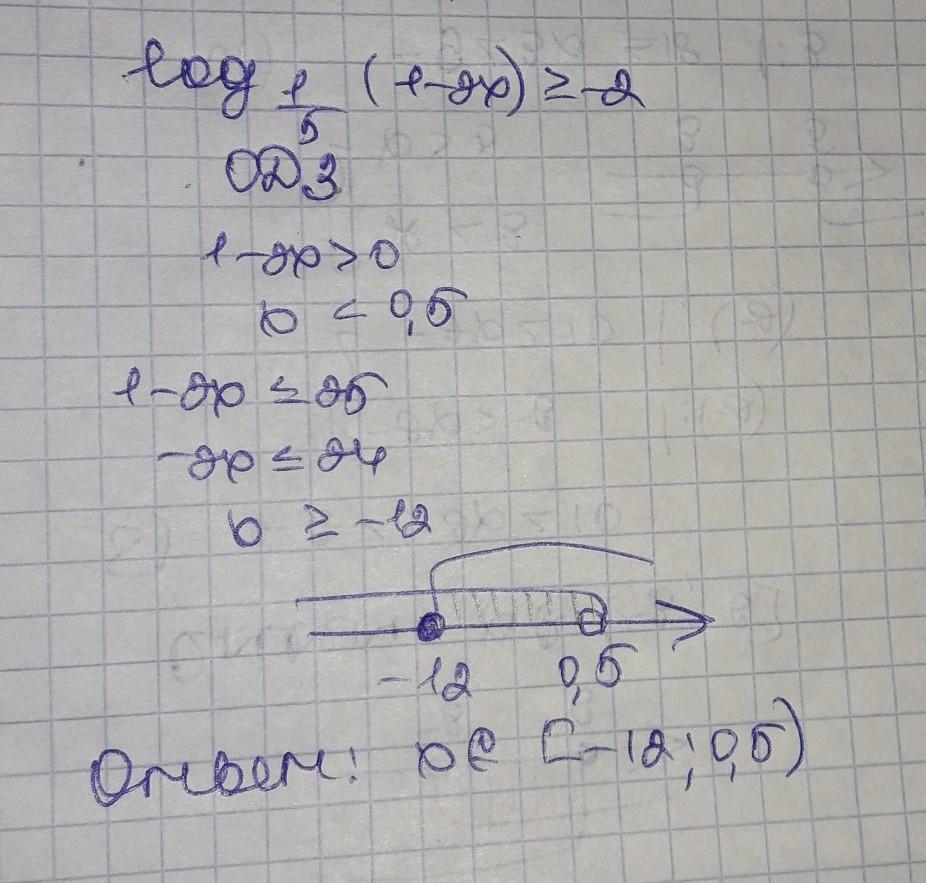 log 1/5 (1-2x) ≥ -2
ОДЗ
1-2x > 0
x < 0,5
1-2x ≤ 25
-2x ≤ 24
x ≥ -12
-12 0,5
Ответ: x ∈ [-12; 0,5)